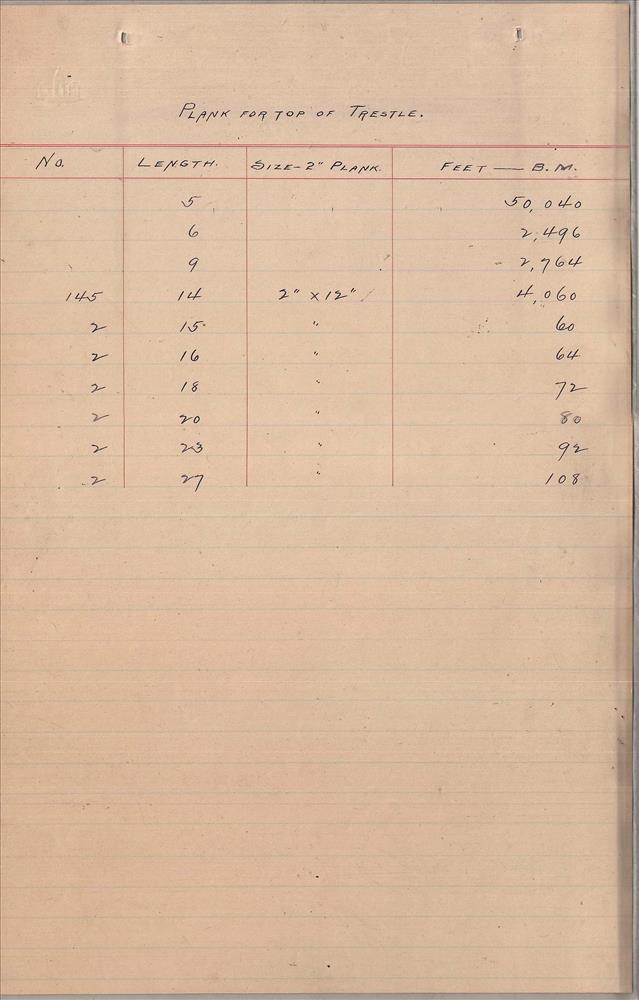 PLANK FOR TOP OF TRESTLE.
No. LENGTH. SIZE-2" PLANK. FEET — B.M.
5 50,040
6 2,496
9 2,764
145 14 2" x 12" 4,060
2 15 " 60
2 16 " 64
2 18 " 72
2 20 80
2 23 " 92
2 27 " 108